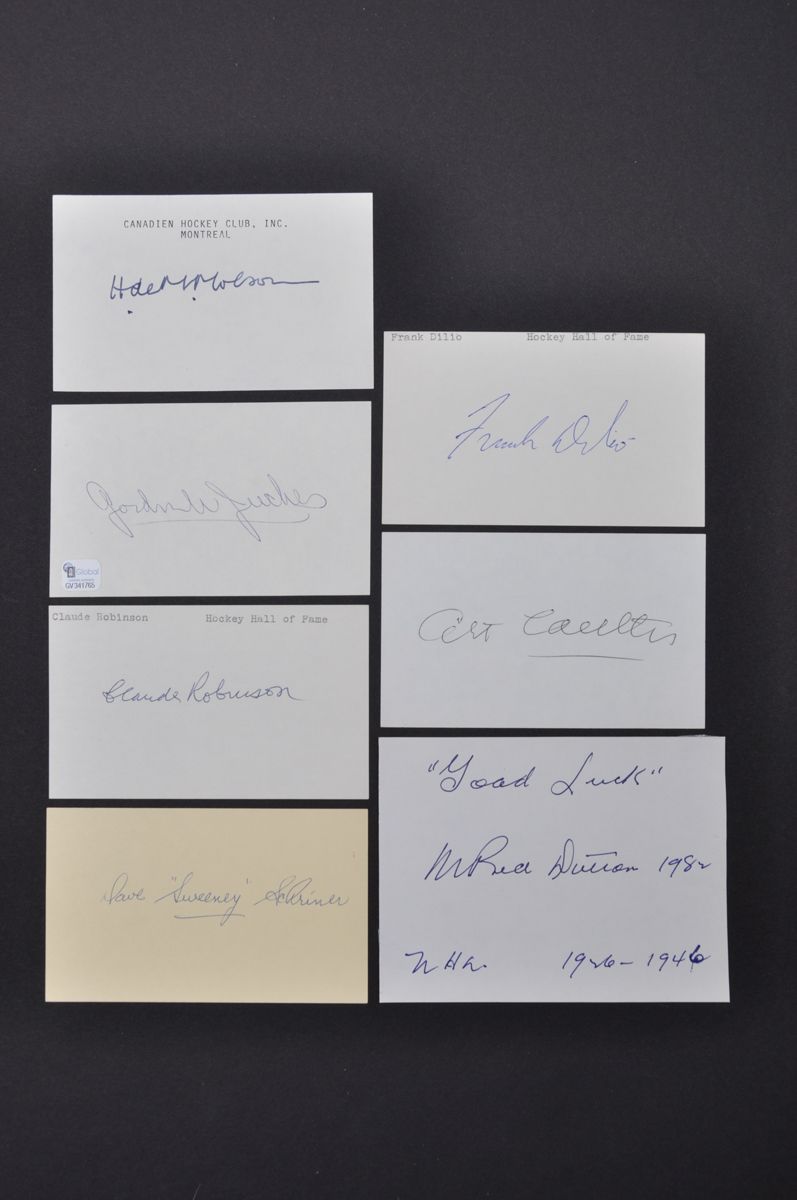 CANADIEN HOCKEY CLUB, INC.
MONTREAL
H de M Molson
Gordon W Juckes
Global
GV341765
Claude Robinson Hockey Hall of Fame
Claude Robinson
Dave "Sweeney" Schriner
Frank Dilio Hockey Hall of Fame
Frank Dilio
Art Coulter
"Good Luck"
M Red Dutton 1982
N H L. 1926-1946